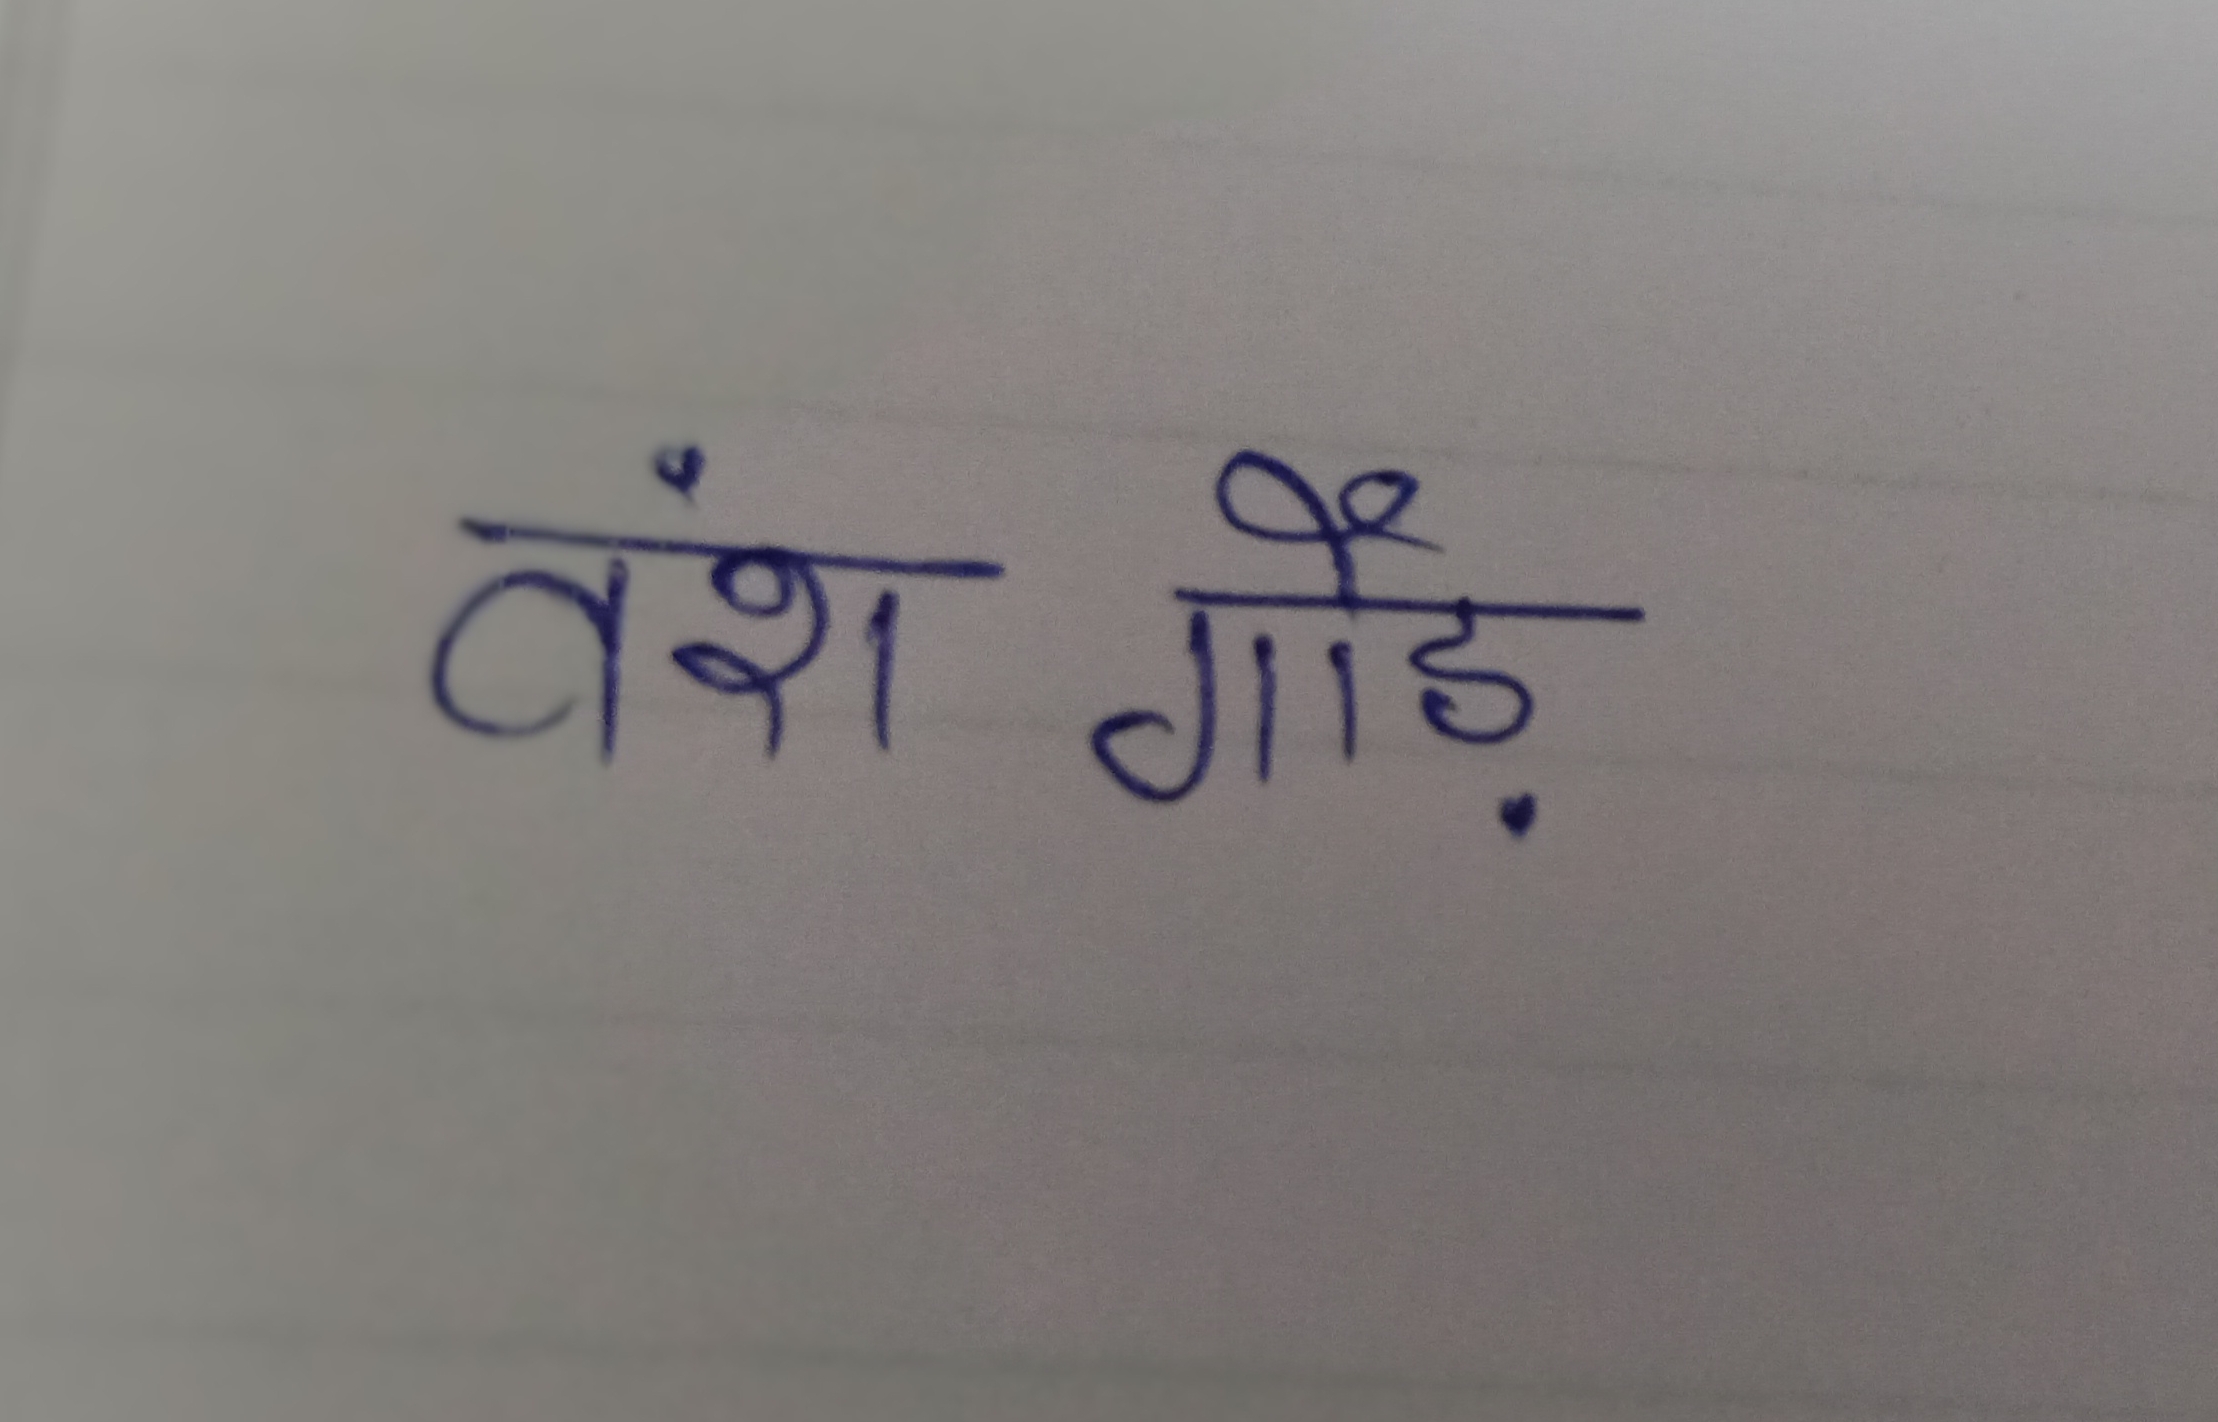 वंश गौड़